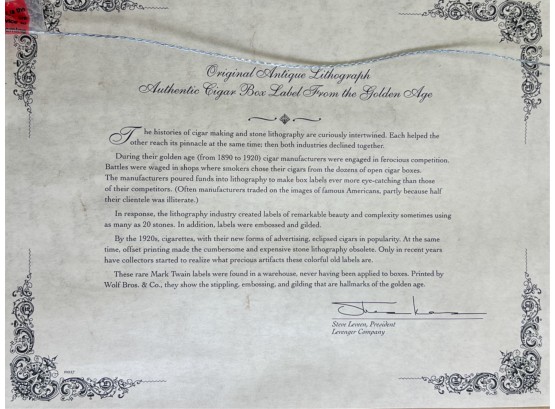 Original Antique Lithograph
Authentic Cigar Box Label From the Golden Age
The histories of cigar making and stone lithography are curiously intertwined. Each helped the
other reach its pinnacle at the same time; then both industries declined together.
During their golden age (from 1890 to 1920) cigar manufacturers were engaged in ferocious competition.
Battles were waged in shops where smokers chose their cigars from the dozens of open cigar boxes.
The manufacturers poured funds into lithography to make box labels ever more eye-catching than those
of their competitors. (Often manufacturers traded on the images of famous Americans, partly because half
their clientele was illiterate.)
In response, the lithography industry created labels of remarkable beauty and complexity sometimes using
as many as 20 stones. In addition, labels were embossed and gilded.
By the 1920s, cigarettes, with their new forms of advertising, eclipsed cigars in popularity. At the same
time, offset printing made the cumbersome and expensive stone lithography obsolete. Only in recent years
have collectors started to realize what precious artifacts these colorful old labels are.
These rare Mark Twain labels were found in a warehouse, never having been applied to boxes. Printed by
Wolf Bros. & Co., they show the stippling, embossing, and gilding that are hallmarks of the golden age.
Steve Leveen, President
Levenger Company